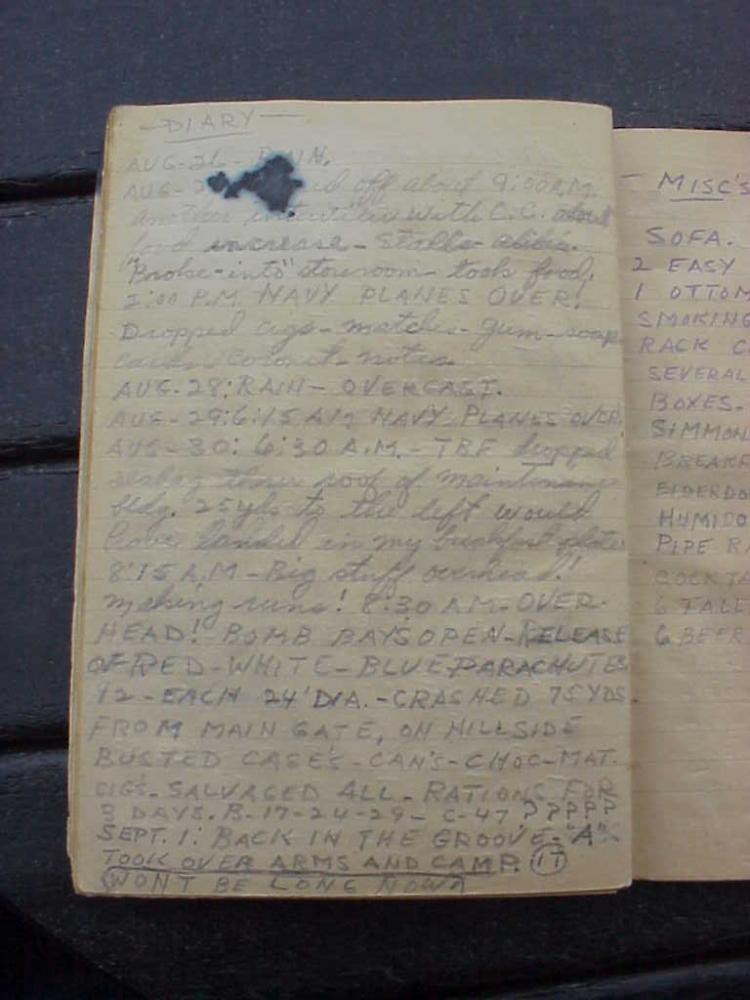 — DIARY —
AUG-26- RAIN.
AUG- off about 9:00 A.M.
another with C.C. about
food increase - Stalls - alibis.
"Broke-into" storeroom - took food.
2:00 P.M. NAVY PLANES OVER!
Dropped cigs - matches - gum - soap
notes
AUG. 28: RAIN - OVERCAST.
AUG - 29: 6:15 AM NAVY PLANES OVER.
AUG - 30: 6:30 A.M. - TBF dropped
seabag thru roof of maintenance
bldg. 25 yds to the left would
have landed in my breakfast plate
8:15 A.M - Big stuff overhead!
making runs! 8:30 A.M. - OVER-
HEAD! BOMB BAYS OPEN - RELEASE
OF RED - WHITE - BLUE PARACHUTES
12 - EACH 24' DIA. - CRASHED 75 YDS.
FROM MAIN GATE, ON HILLSIDE
BUSTED CASES - CAN'S - CHOC - MAT.
CIGS. SALVAGED ALL - RATIONS FOR
3 DAYS. B-17-24-29 - C-47 ?????
SEPT. 1: BACK IN THE GROOVE - "A"
TOOK OVER ARMS AND CAMP. IT
WONT BE LONG NOW
— MISC'S
SOFA.
2 EASY
1 OTTOM
SMOKING
RACK C
SEVERAL
BOXES.
SIMMON
BREAKF
EIDERDO
HUMIDO
PIPE RA
COCKTA
6 TALL
6 BEER